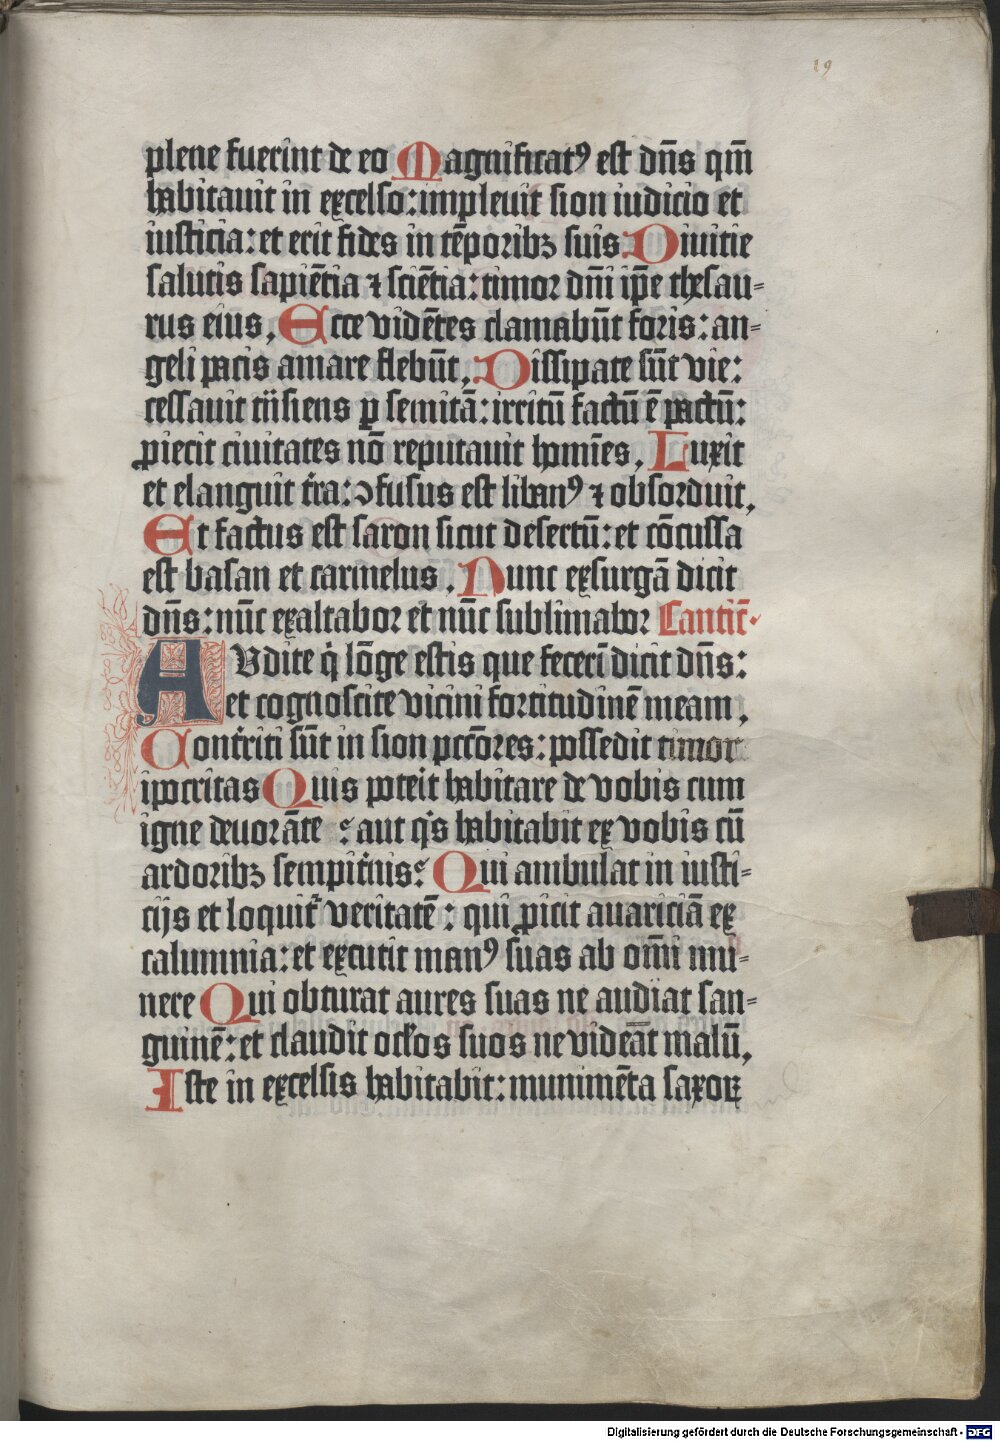 19
plene fuerint de eo Magnificatꝰ est dn̄s qm̄
habitauit in excelso: impleuit sion iudicio et
iusticia: et erit fides in tēporibꝫ suis Diuitie
salutis sapiētia ⁊ sciētia: timor dn̄i ip̄e thesau-
rus eius, Ecce vidētes clamabūt foris: an-
geli pacis amare flebūt, Dissipate sūt vie:
cessauit trāsiens ꝑ semitā: irritū factū ē pactū:
ꝓiecit ciuitates nō reputauit homīes, Luxit
et elanguit t̄ra: ↄfusus est libanꝰ ⁊ obsorduit,
Et factus est saron sicut desertū: et cōcussa
est basan et carmelus, Nunc exsurgā dicit
dn̄s: nūc exaltabor et nūc sublimabor Cantic̄
AVdite q̇ lōge estis que fecerī dicit dn̄s:
et cognoscite vicini fortitudinē meam,
Contṙiti sūt in sion pccōres: possedit timor
ipocritas Quis poterit habitare de vobis cum
igne deuorāte ? aut q̇s habitabit ex vobis cū
ardoribꝫ sempiṫnis? Qui ambulat in iusti-
cijs et loquit᷑ veritatē: qui ꝓicit auariciā ex
calumnia: et excutit manꝰ suas ab om̄i mu-
nere Qui obturat aures suas ne audiat san-
guinē: et claudit oc̄los suos ne videat malū,
Iste in excelsis habitabit: munimēta saxoꝝ
Digitalisierung gefördert durch die Deutsche Forschungsgemeinschaft - DFG